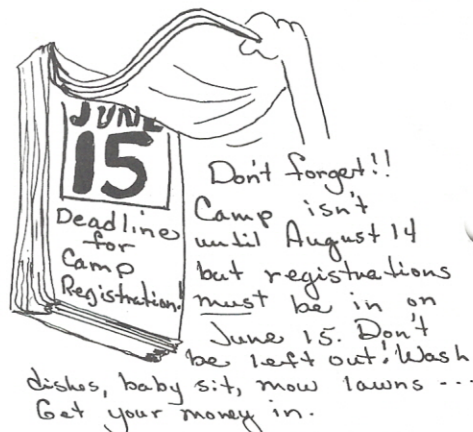 JUNE
15
Deadline
for
Camp
Registration!
Don't forget!!
Camp isn't
until August 14
but registrations
must be in on
June 15. Don't
be left out! Wash
dishes, baby sit, mow lawns ---
Get your money in.